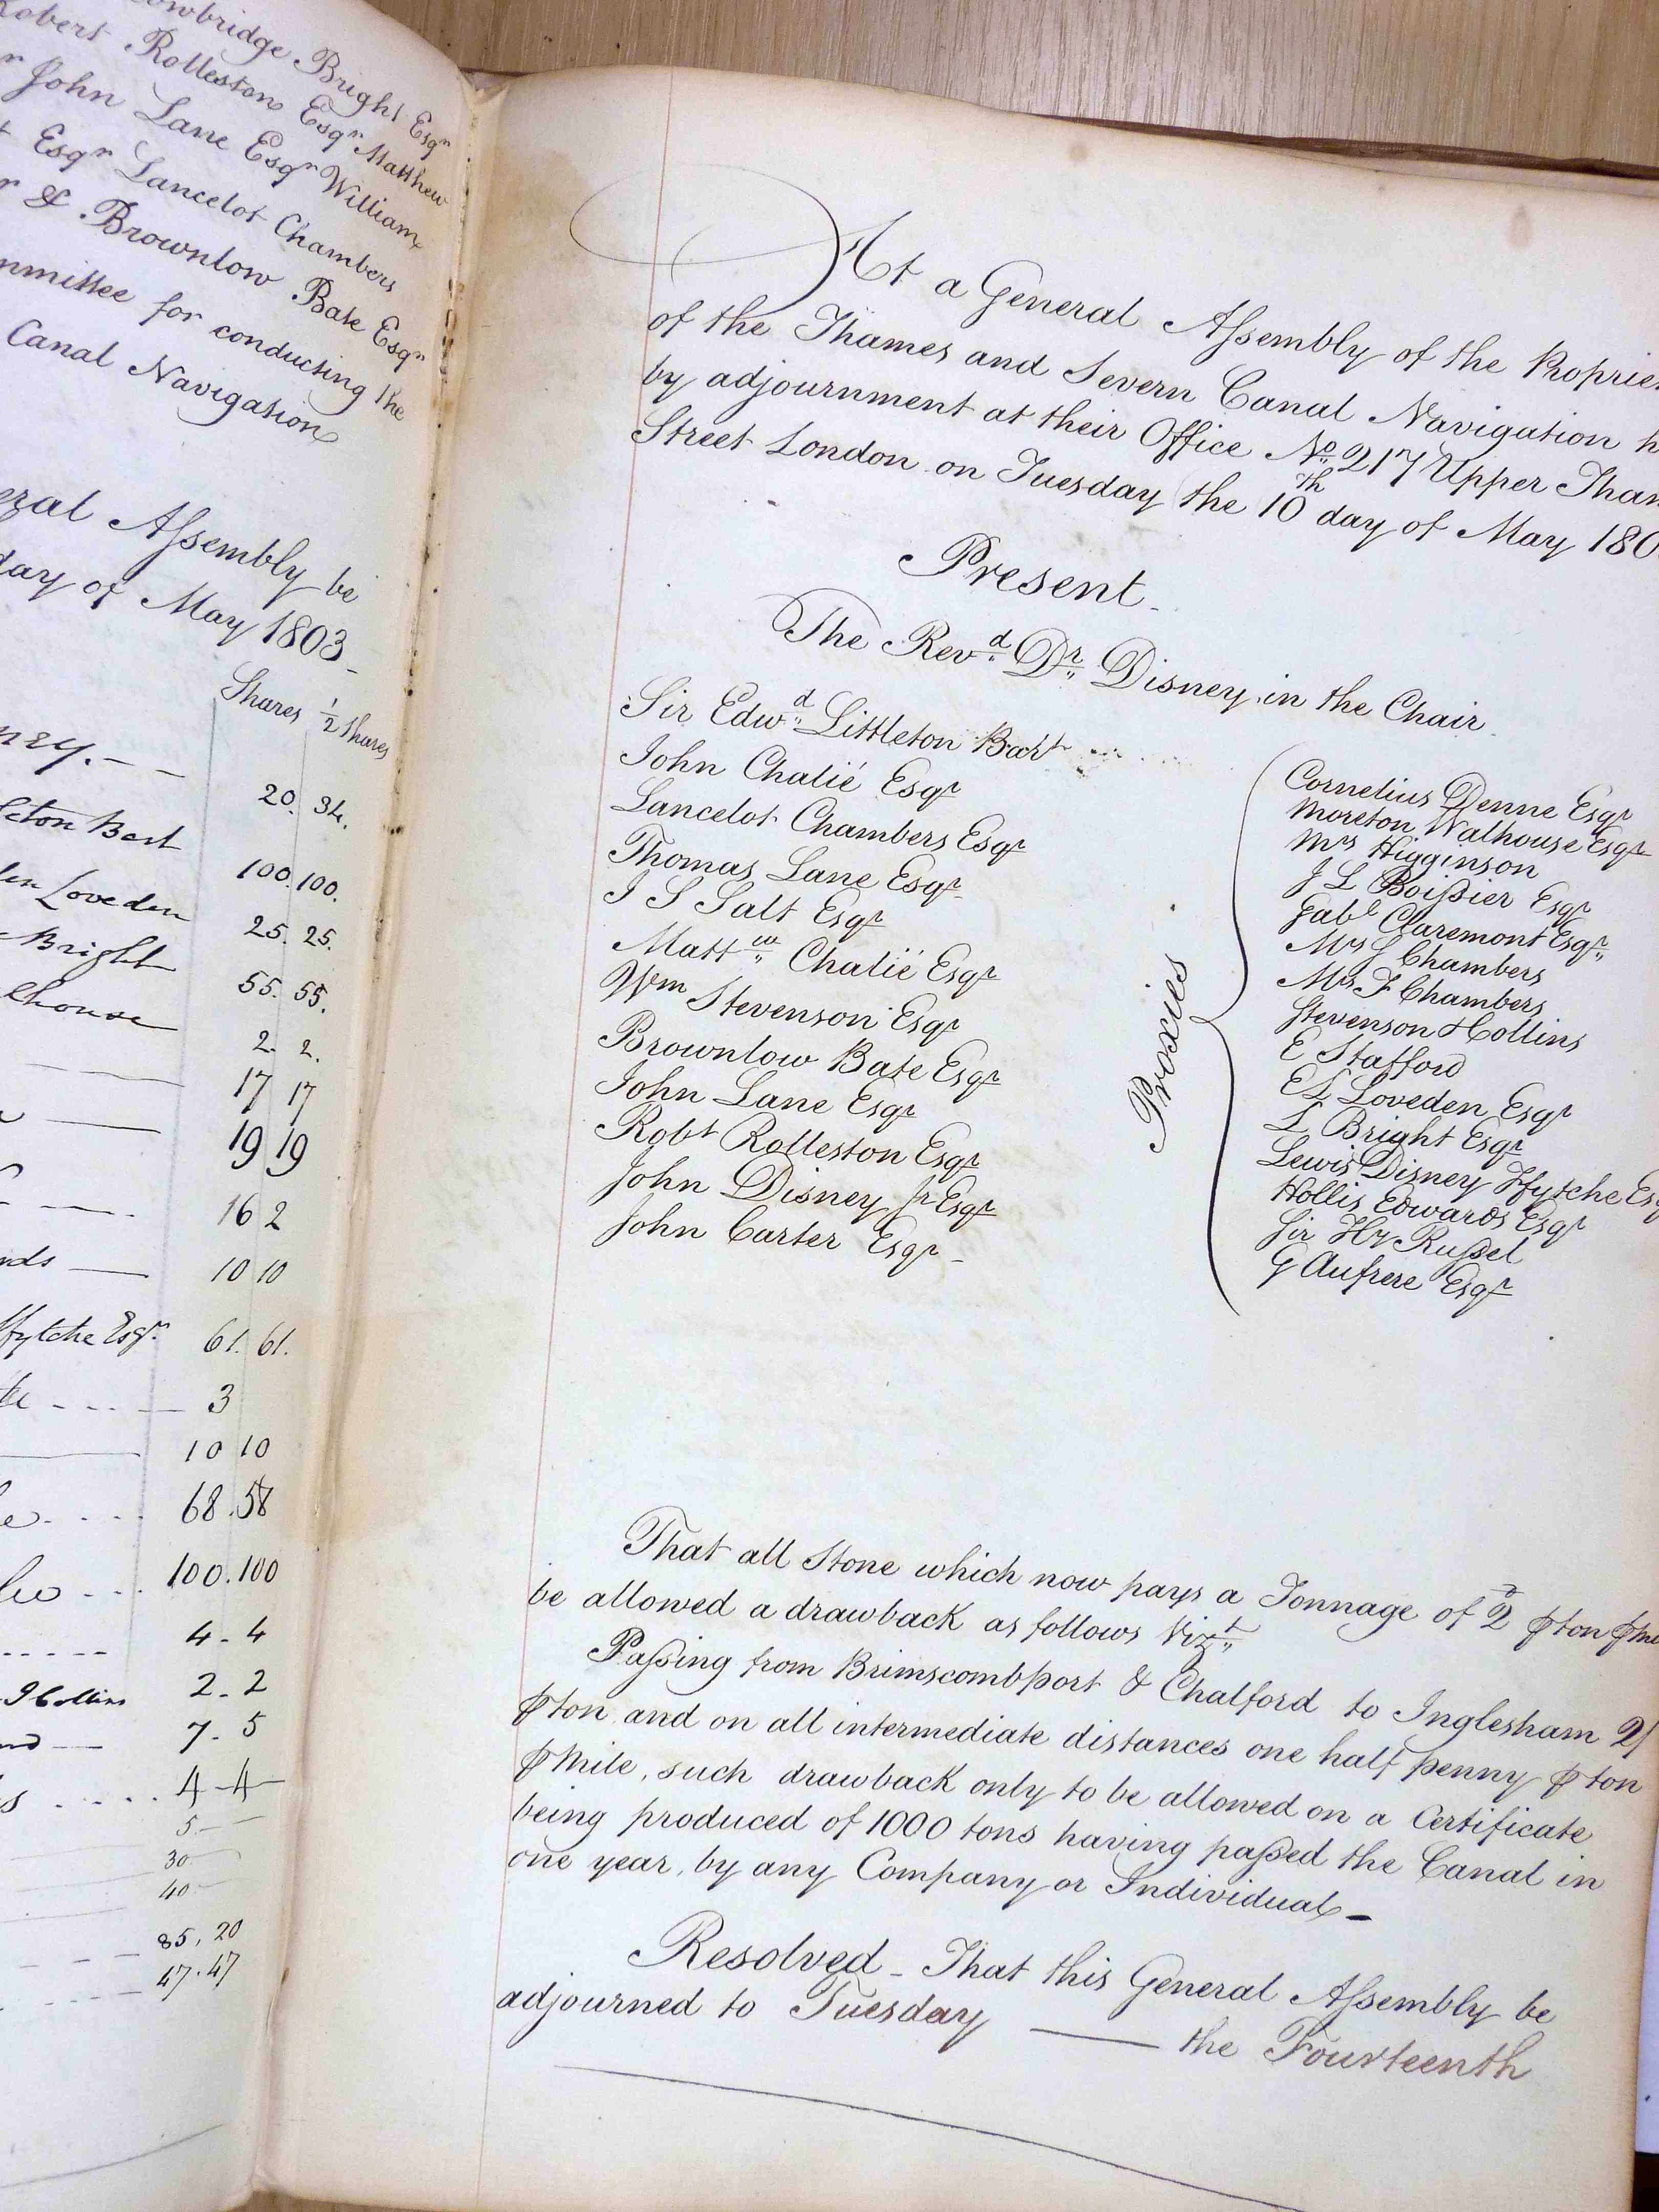 owbridge Bright Esqr
Robert Rolleston Esqr Matthew
r John Lane Esqr William
t Esqr Lancelot Chambers
r & Brownlow Bate Esqr
mmittee for conducting the
Canal Navigation
eral Assembly be
day of May 1803
Shares ½ Shares
ney.
20. 34.
leton Bart
100. 100.
den Loveden
25. 25.
Bright
55. 55.
lhouse
2. 2.
17 17
19 19
16 2
nds 10 10
ffytche Esqr. 61. 61.
3
10 10
68. 58
100. 100
4 - 4
Hollins 2 - 2
7 - 5
4 - 4
5
30
40
85, 20
47. 47
At a General Assembly of the Proprie
of the Thames and Severn Canal Navigation h
by adjournment at their Office No 217 Upper Tham
Street London on Tuesday the 10th day of May 180
Present
The Revd Dr Disney in the Chair
Sir Edwd Littleton Bart
John Chalié Esqr
Lancelot Chambers Esqr
Thomas Lane Esqr
J S Salt Esqr
Mattw Chalié Esqr
Wm Stevenson Esqr
Brownlow Bate Esqr
John Lane Esqr
Robt Rolleston Esqr
John Disney Jr Esqr
John Carter Esqr
Proxies
Cornelius Denne Esqr
Moreton Walhouse Esqr
Mrs Higginson
J L Boissier Esqr
Gabl Claremont Esqr
Mrs Chambers
Mrs F Chambers
Stevenson Hollins
E Stafford
E L Loveden Esqr
L Bright Esqr
Lewis Disney Ffytche Es
Hollis Edwards Esqr
Sir Hy Russel
G Aufrere Esqr
That all Stone which now pays a Tonnage of 2 ⅌ ton ⅌ Mi
be allowed a drawback as follows Vizt
Passing from Brimscombport & Chalford to Inglesham 2/
⅌ ton and on all intermediate distances one half penny ⅌ ton
⅌ Mile, such drawback only to be allowed on a Certificate
being produced of 1000 tons having passed the Canal in
one year, by any Company or Individual
Resolved - That this General Assembly be
adjourned to Tuesday the Fourteenth